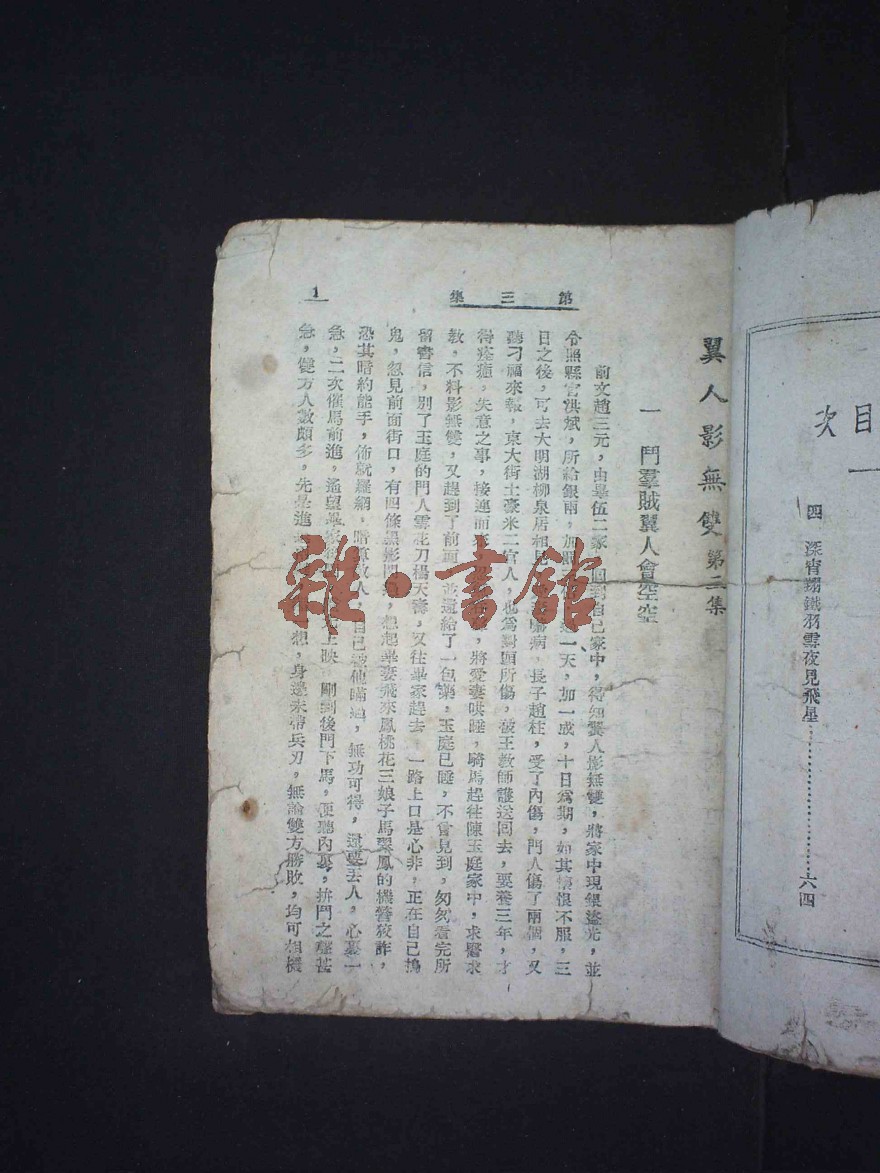 目次
四 深宵翔鐵羽雪夜見飛星……………………六四
翼人影無雙 第三集
第三集
1
一 鬥羣賊翼人會空空
前文趙三元，由畢伍二家，回到自己家中，得知翼人影無雙，將家中現銀盜光，並
令照縣官洪斌，所給銀兩，加一天，加一成，十日爲期，如其懷恨不服，三
日之後，可去大明湖柳泉居相見病，長子趙柱，受了內傷，門人傷了兩個，又
聽刁福來報，東大街土豪米二官人，也爲對頭所傷，被王教師護送回去，要養三年，才
得痊癒，失意之事，接連而來，將愛妻哄睡，騎馬趕往陳玉庭家中，求醫求
救，不料影無雙，又趕到了前面，並還給了一包藥，玉庭已睡，不曾見到，匆匆看完所
留書信，別了玉庭的門人雪花刀楊天壽，又往畢家趕去，一路上口是心非，正在自己搗
鬼，忽見前面街口，有四條黑影閃，想起畢妻飛來鳳桃花三娘子馬翠鳳的機警狡詐，
恐其暗約能手，佈就羅網，暗算敵人，自己被他瞞過，無功可得，還要丟人，心裏一
急，二次催馬前進，遙望畢家上映，剛到後門下馬，便聽內裏，拚鬥之聲甚
急，雙方人數頗多，先是進想，身邊未帶兵刃，無論雙方勝敗，均可相機
雜·書館